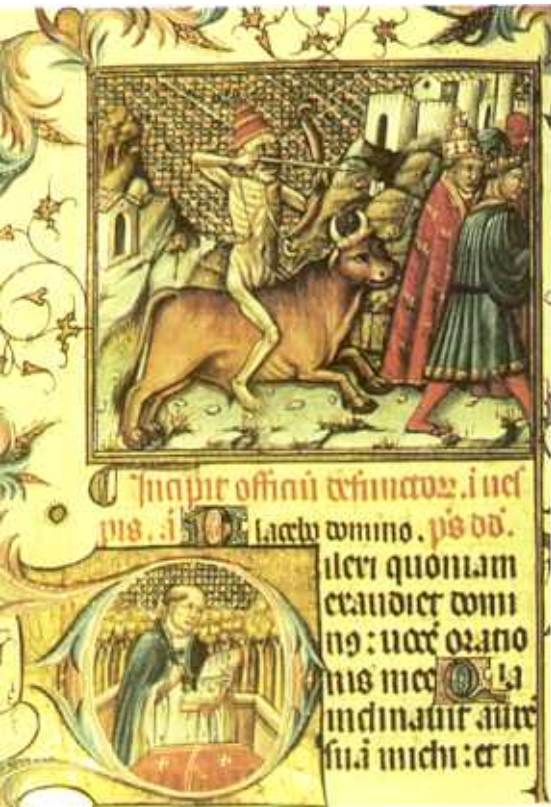 Incipit officiū defunctoꝝ. i ues
pis. ā Placebo domino. p̄s dd̄.
Dilexi quoniam
exaudiet domi
nꝰ: uocē oratio
nis mee Quia
inclinauit aurē
suā michi: et in